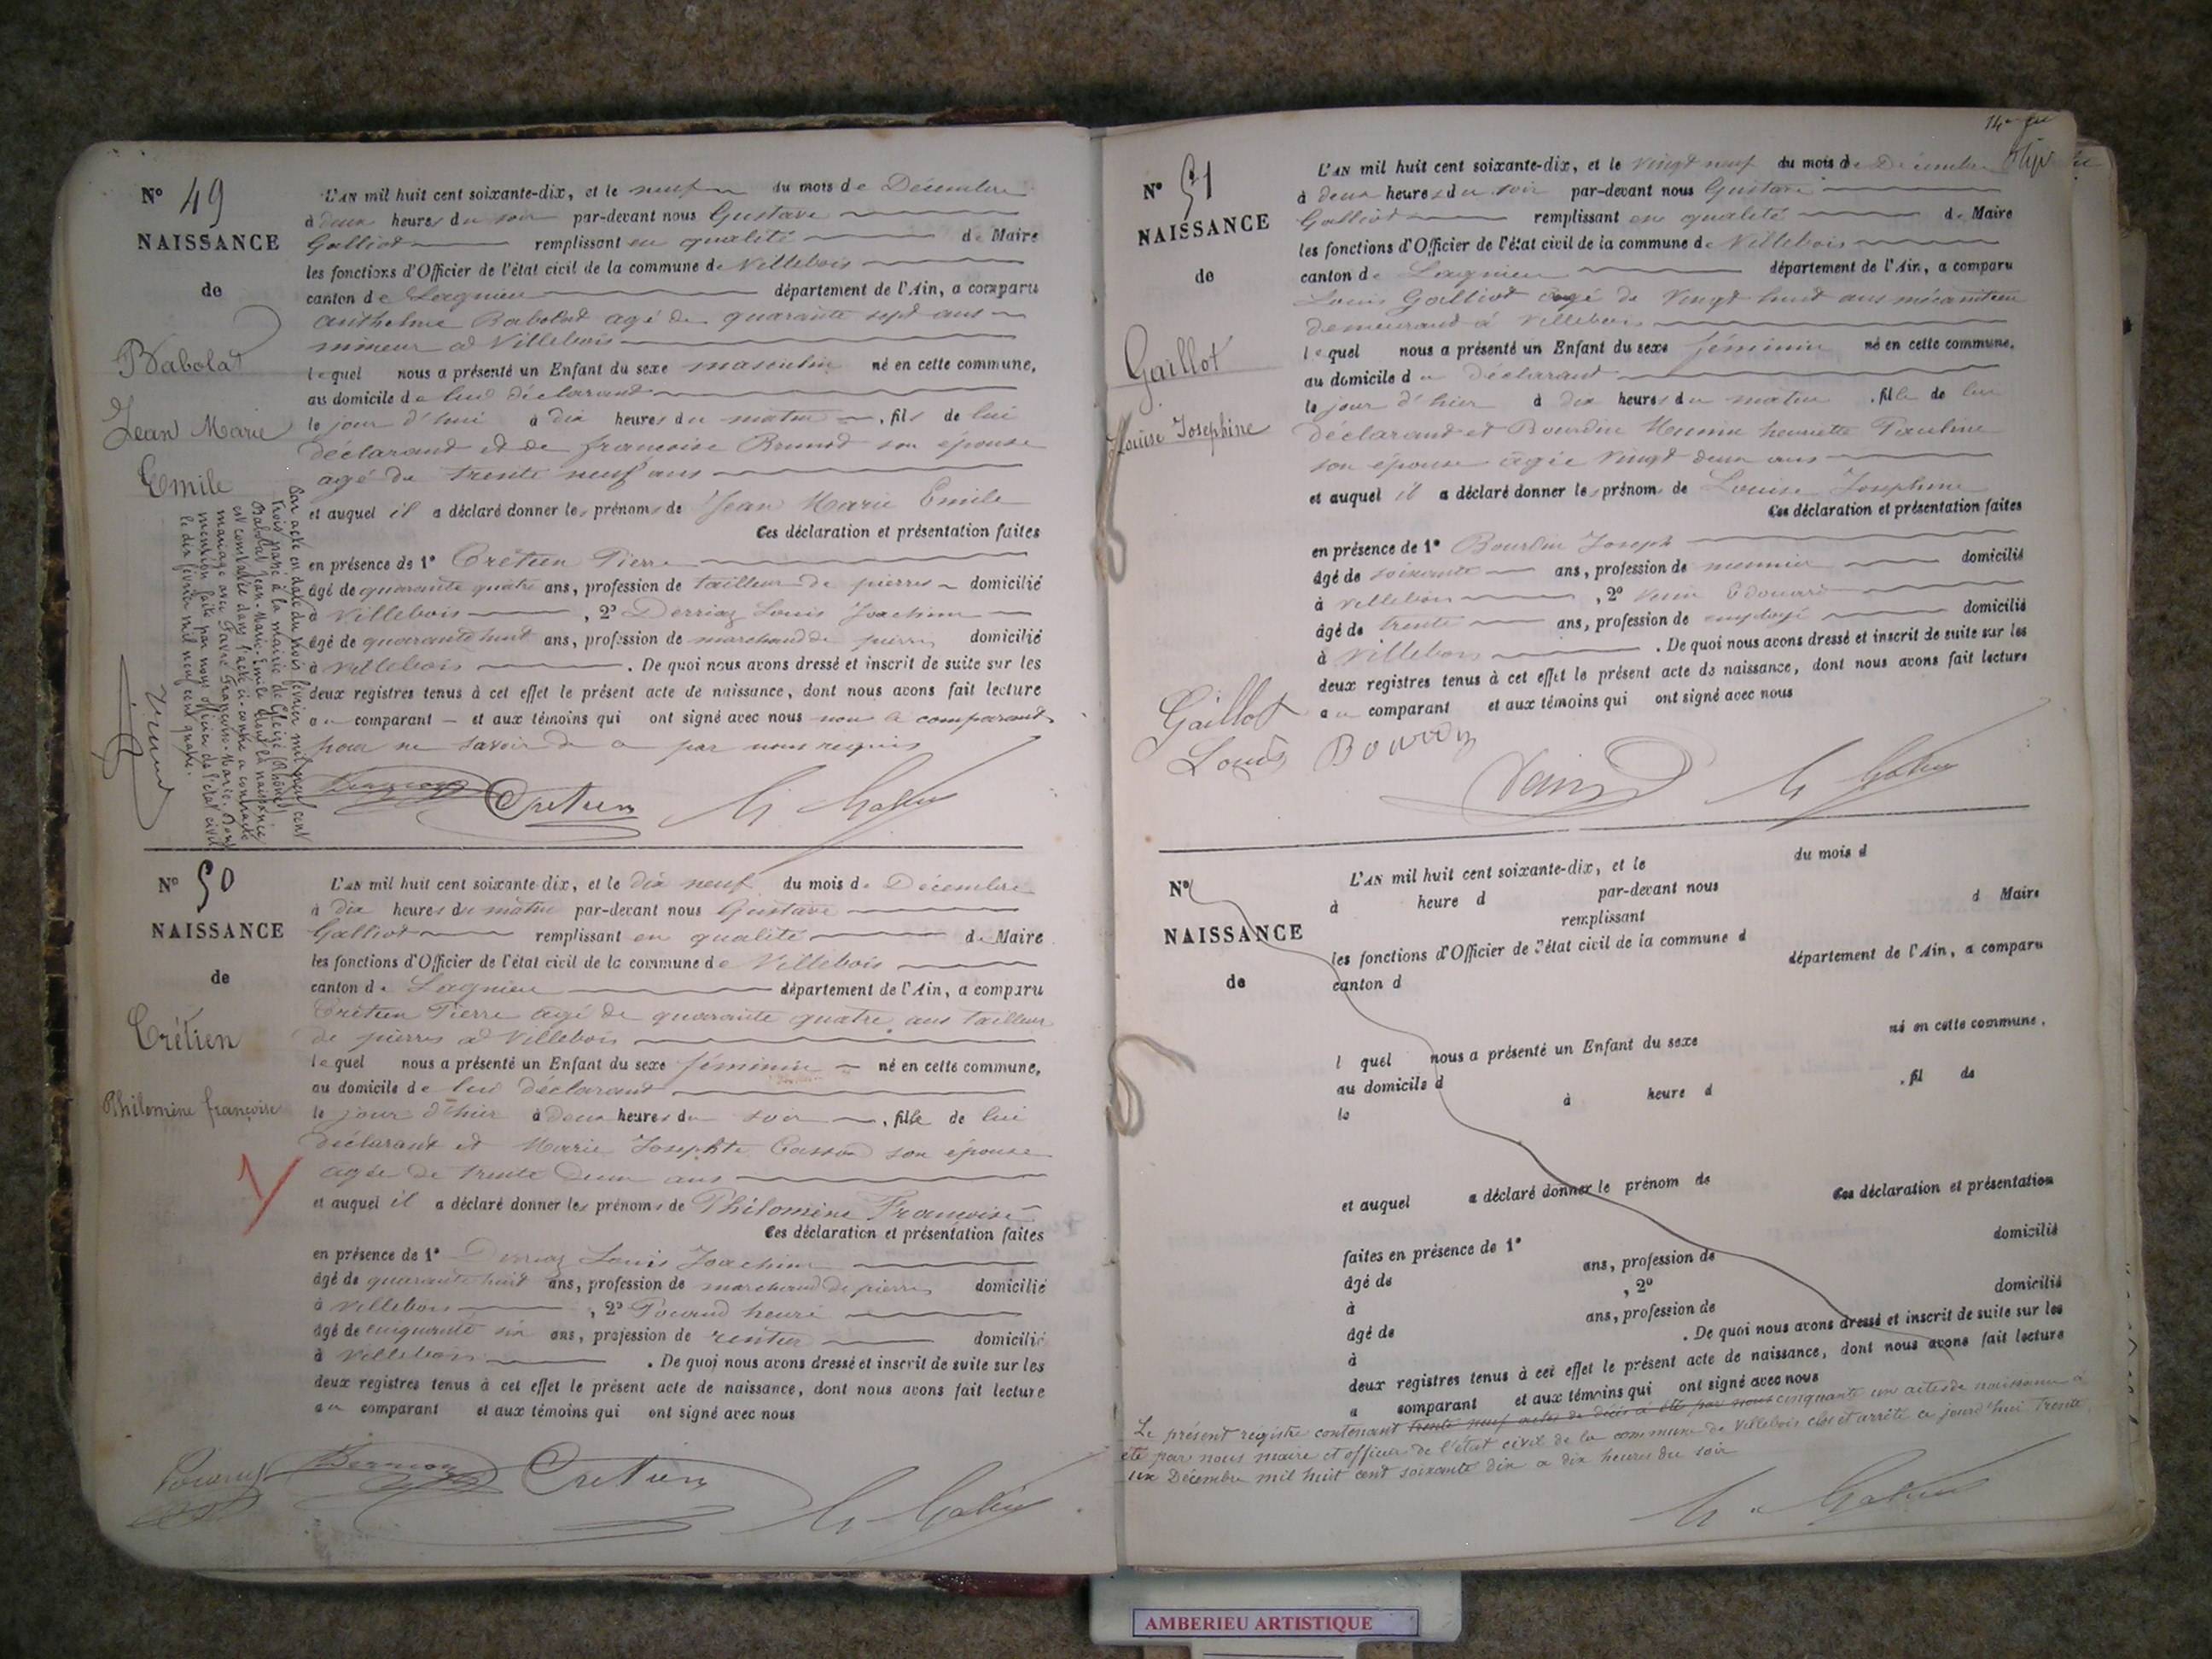 Nº 49
NAISSANCE
de
Babolat
Jean Marie
Emile
L'AN mil huit cent soixante-dix, et le neuf du mois de Décembre
à deux heures du soir par-devant nous Gustave
Galliot remplissant en qualité de Maire
les fonctions d'Officier de l'état civil de la commune de Villebois
canton de Lagnieu département de l'Ain, a comparu
Anthelme Babolat agé de quarante sept ans
mineur a Villebois
lequel nous a présenté un Enfant du sexe masculin né en cette commune,
au domicile de lui déclarant
le jour d'hui à dix heures du matin, fils de lui
déclarant et de françoise Brunod son épouse
agé de trente neuf ans
et auquel il a déclaré donner les prénoms de Jean Marie Emile
Ces déclaration et présentation faites
en présence de 1º Crétien Pierre
âgé de quarante quatre ans, profession de tailleur de pierres domicilié
à Villebois, 2º Derriaz Louis Joachim
âgé de quarante huit ans, profession de marchand de pierres domicilié
à Villebois. De quoi nous avons dressé et inscrit de suite sur les
deux registres tenus à cet effet le présent acte de naissance, dont nous avons fait lecture
au comparant et aux témoins qui ont signé avec nous non le comparant
pour ne savoir de ce par nous requis
Par acte en date du trois février mil neuf cent
trois passé à la mairie de Gleizé (Rhône)
Babolat Jean-Marie-Emile dont la naissance
est constatée dans l'acte ci-contre a contracté
mariage avec Favre Françoise-Marie. Dont
mention faite par nous officier de l'état civil
le dix février mil neuf cent quatre.
Cretien
Nº 50
NAISSANCE
de
Crétien
Philomène françoise
L'AN mil huit cent soixante-dix, et le dix neuf du mois de Décembre
à dix heures du matin par-devant nous Gustave
Galliot remplissant en qualité de Maire
les fonctions d'Officier de l'état civil de la commune de Villebois
canton de Lagnieu département de l'Ain, a comparu
Crétien Pierre agé de quarante quatre ans tailleur
de pierres a Villebois
lequel nous a présenté un Enfant du sexe féminin né en cette commune,
au domicile de lui déclarant
le jour d'hier à deux heures du soir, fille de lui
déclarant et Marie Josephte Casson son épouse
agée de trente deux ans
et auquel il a déclaré donner les prénoms de Philomène Françoise
Ces déclaration et présentation faites
en présence de 1º Derriaz Louis Joachim
âgé de quarante huit ans, profession de marchand de pierres domicilié
à Villebois, 2º henri
âgé de cinquante six ans, profession de rentier domicilié
à Villebois. De quoi nous avons dressé et inscrit de suite sur les
deux registres tenus à cet effet le présent acte de naissance, dont nous avons fait lecture
au comparant et aux témoins qui ont signé avec nous
Cretien
Nº 51
NAISSANCE
de
Gaillot
Louise Josephine
L'AN mil huit cent soixante-dix, et le vingt neuf du mois de Décembre
à deux heures du soir par-devant nous Gustave
Galliot remplissant en qualité de Maire
les fonctions d'Officier de l'état civil de la commune de Villebois
canton de Lagnieu département de l'Ain, a comparu
Louis Galliot agé de vingt huit ans mécanicien
demeurant à Villebois
lequel nous a présenté un Enfant du sexe féminin né en cette commune,
au domicile du déclarant
le jour d'hier à dix heures du matin, fille de lui
déclarant et Bourdin henriette Pauline
son épouse agée vingt deux ans
et auquel il a déclaré donner les prénoms de Louise Josephine
Ces déclaration et présentation faites
en présence de 1º Bourdin Joseph
âgé de soixante ans, profession de meunier domicilié
à Villebois, 2º Edouard
âgé de trente ans, profession de employé domicilié
à Villebois. De quoi nous avons dressé et inscrit de suite sur les
deux registres tenus à cet effet le présent acte de naissance, dont nous avons fait lecture
au comparant et aux témoins qui ont signé avec nous
Gaillot
Louis Bourdin
Nº
NAISSANCE
de
L'AN mil huit cent soixante-dix, et le du mois d
à heure d par-devant nous
remplissant d Maire
les fonctions d'Officier de l'état civil de la commune d
canton d département de l'Ain, a comparu
l quel nous a présenté un Enfant du sexe né en cette commune,
au domicile d
le à heure d , fil de
et auquel a déclaré donner le prénom de
Ces déclaration et présentation
faites en présence de 1º
âgé de ans, profession de domicilié
à , 2º
âgé de ans, profession de domicilié
à . De quoi nous avons dressé et inscrit de suite sur les
deux registres tenus à cet effet le présent acte de naissance, dont nous avons fait lecture
a comparant et aux témoins qui ont signé avec nous
Le présent registre contenant trente neuf actes de décès a été par nous cinquante un actes de naissance a
été par nous maire et officier de l'état civil de la commune de Villebois clos et arrêté ce jourd'hui trente
un Décembre mil huit cent soixante dix a dix heures du soir
AMBERIEU ARTISTIQUE